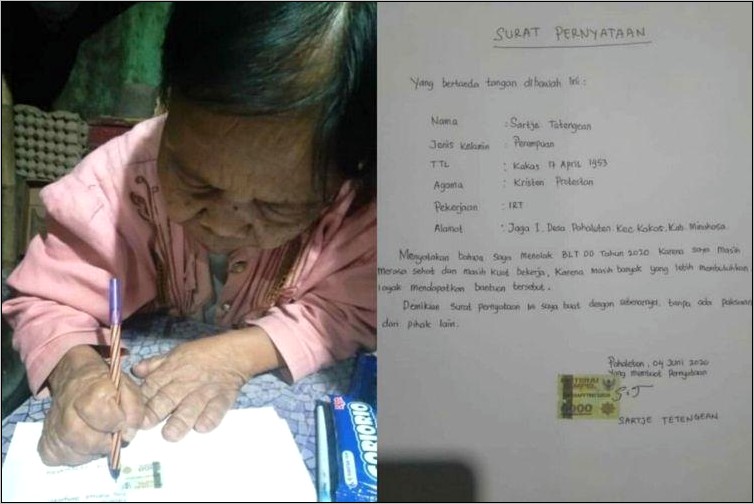 SURAT PERNYATAAN
Yang bertanda tangan dibawah ini :
Nama : Sartje Tetengean
Jenis Kelamin : Perempuan
TTL : Kakas 17 April 1953
Agama : Kristen Protestan
Pekerjaan : IRT
Alamat : Jaga I. Desa Pahaleten Kec. Kakas. Kab. Minahasa.
Menyatakan bahwa saya Menolak BLT DD Tahun 2020 Karena saya masih
merasa sehat dan masih kuat bekerja, Karena masih banyak yang lebih membutuhkan
layak mendapatkan bantuan tersebut.
Demikian surat pernyataan ini saya buat dengan sebenarnya, tanpa ada paksaan
dari pihak lain.
Pahaleten, 04 Juni 2020
Yang membuat Pernyataan
6000
S.T
SARTJE TETENGEAN